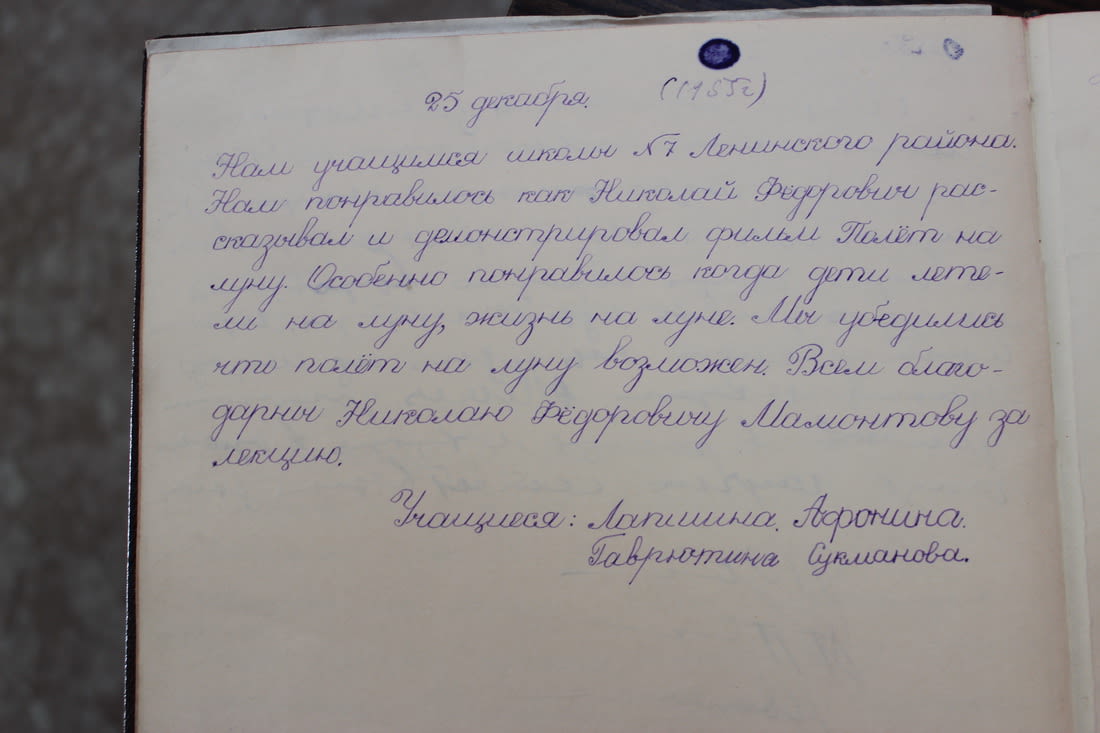 25 декабря. (1955г)
Нам учащимся школы №7 Ленинского района.
Нам понравилось как Николай Фёдорович рас-
сказывал и демонстрировал фильм Полёт на
луну. Особенно понравилось когда дети лете-
ли на луну, жизнь на луне. Мы убедились
что полёт на луну возможен. Всем благо-
дарны Николаю Фёдоровичу Мамонтову за
лекцию.
Учащиеся: Лапшина. Афонина.
Гаврютина Сукманова.